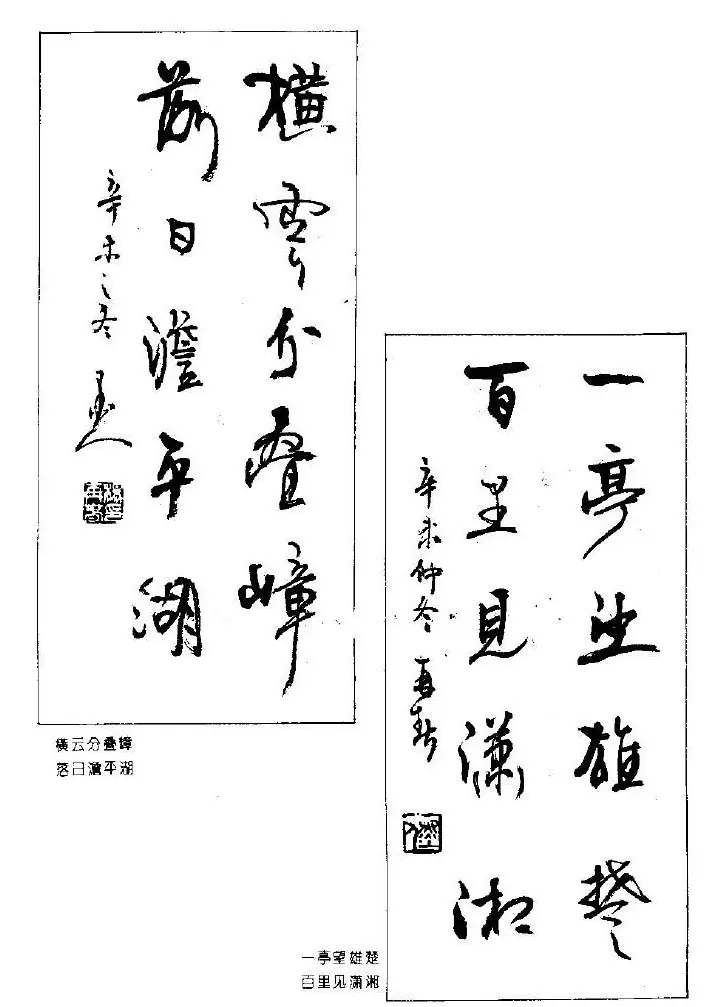 横雲分叠嶂
落日澹平湖
辛未之冬
横云分叠嶂
落日澹平湖
一亭望雄楚
百里見瀟湘
辛未仲冬
一亭望雄楚
百里见潇湘